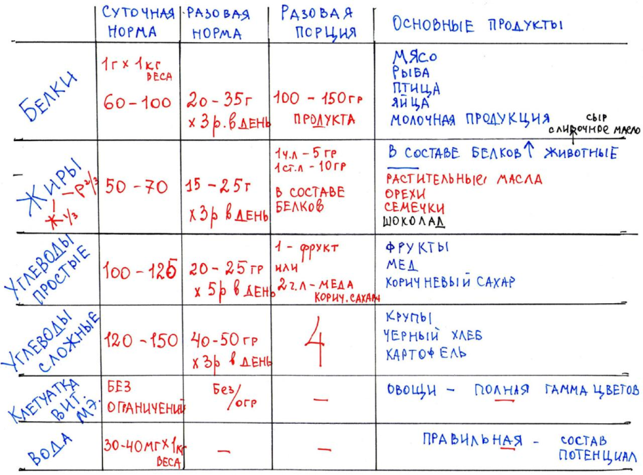 СУТОЧНАЯ НОРМА
РАЗОВАЯ НОРМА
РАЗОВАЯ ПОРЦИЯ
ОСНОВНЫЕ ПРОДУКТЫ
БЕЛКИ
1г × 1кг ВЕСА
60-100
20-35г
× 3 р. в ДЕНЬ
100-150гр
ПРОДУКТА
МЯСО
РЫБА
ПТИЦА
ЯЙЦА
МОЛОЧНАЯ ПРОДУКЦИЯ
СЫР
СЛИВОЧНОЕ МАСЛО
ЖИРЫ
Р 2/3
Ж 1/3
50-70
15-25г
× 3р в ДЕНЬ
1 ч.л - 5 гр
1 ст.л - 10гр
В СОСТАВЕ
БЕЛКОВ
В СОСТАВЕ БЕЛКОВ ↑ ЖИВОТНЫЕ
РАСТИТЕЛЬНЫЕ МАСЛА
ОРЕХИ
СЕМЕЧКИ
ШОКОЛАД
УГЛЕВОДЫ
ПРОСТЫЕ
100-125
20-25гр
× 5р в ДЕНЬ
1 - ФРУКТ
ИЛИ
2 ч.л - МЕДА
КОРИЧ. САХАРА
ФРУКТЫ
МЕД
КОРИЧНЕВЫЙ САХАР
УГЛЕВОДЫ
СЛОЖНЫЕ
120-150
40-50гр
× 3р в ДЕНЬ
4
КРУПЫ
ЧЕРНЫЙ ХЛЕБ
КАРТОФЕЛЬ
КЛЕТУАТКА
ВИТ.
МЭ.
БЕЗ
ОГРАНИЧЕНИЙ
Без/огр
—
ОВОЩИ - ПОЛНАЯ ГАММА ЦВЕТОВ
ВОДА
30-40мг × 1кг
ВЕСА
—
—
ПРАВИЛЬНАЯ - СОСТАВ
ПОТЕНЦИАЛ